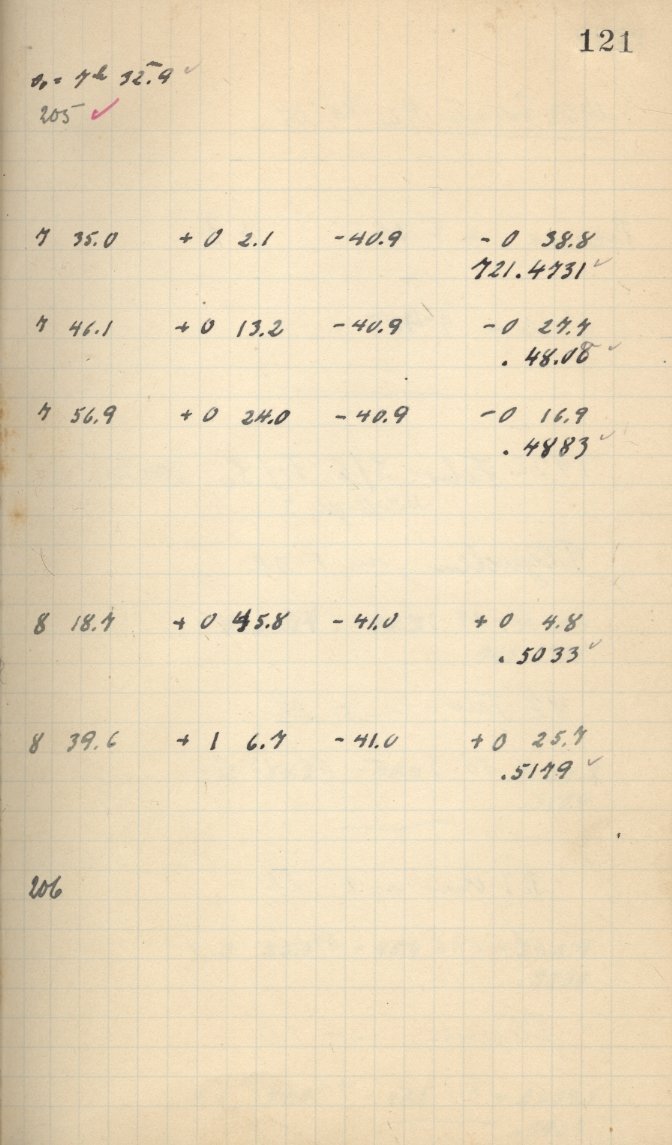 121
s₀ = 7h 32.9 ✓
205 ✓
7 35.0 + 0 2.1 - 40.9 - 0 38.8
721.4731 ✓
7 46.1 + 0 13.2 - 40.9 - 0 27.7
.48.08 ✓
7 56.9 + 0 24.0 - 40.9 - 0 16.9
.4883 ✓
8 18.7 + 0 45.8 - 41.0 + 0 4.8
.5033 ✓
8 39.6 + 1 6.7 - 41.0 + 0 25.7
.5179 ✓
206